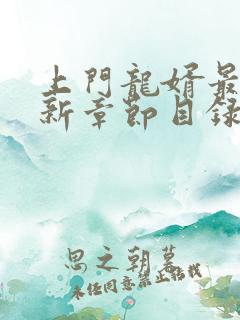 上門龍婿最
新章節目錄
思之朝暮
未任同意禁止転我